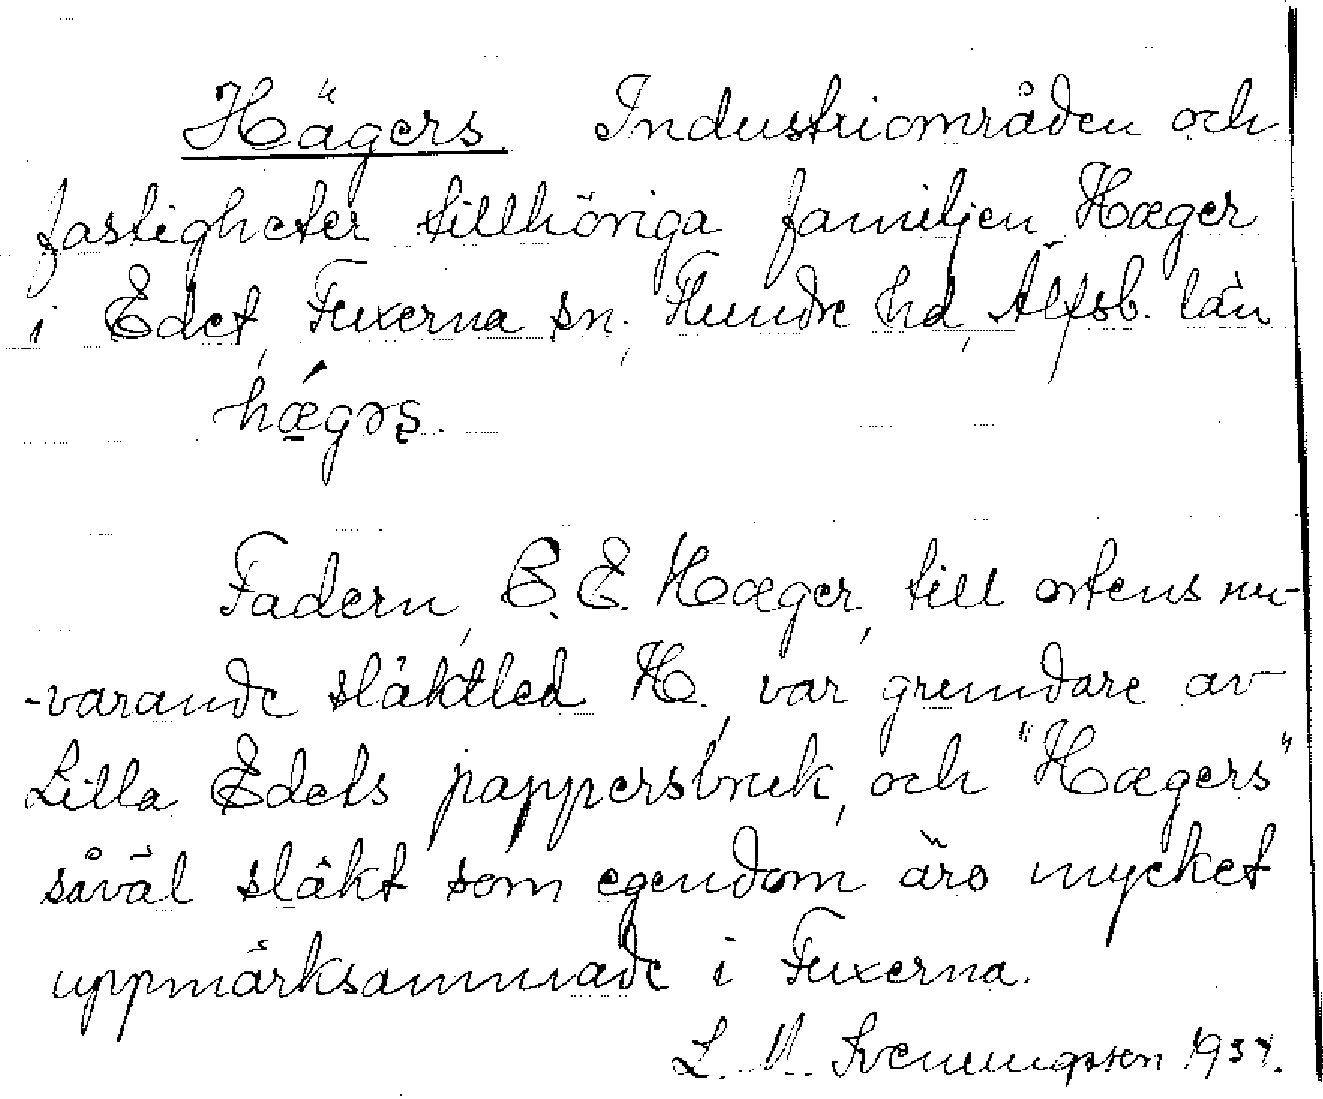 Hägers Industriområden och
fastigheter tillhöriga familjen Hæger
i Edet, Fuxerna sn., Flundre hd, Älfsb. län
hǽgərs.
Fadern, B. E. Hæger, till ortens nu-
-varande släktled H., var grundare av
Lilla Edets pappersbruk, och "Hægers"
såväl släkt som egendom äro mycket
uppmärksammade i Fuxerna.
L. M. Svenungsson 1937.